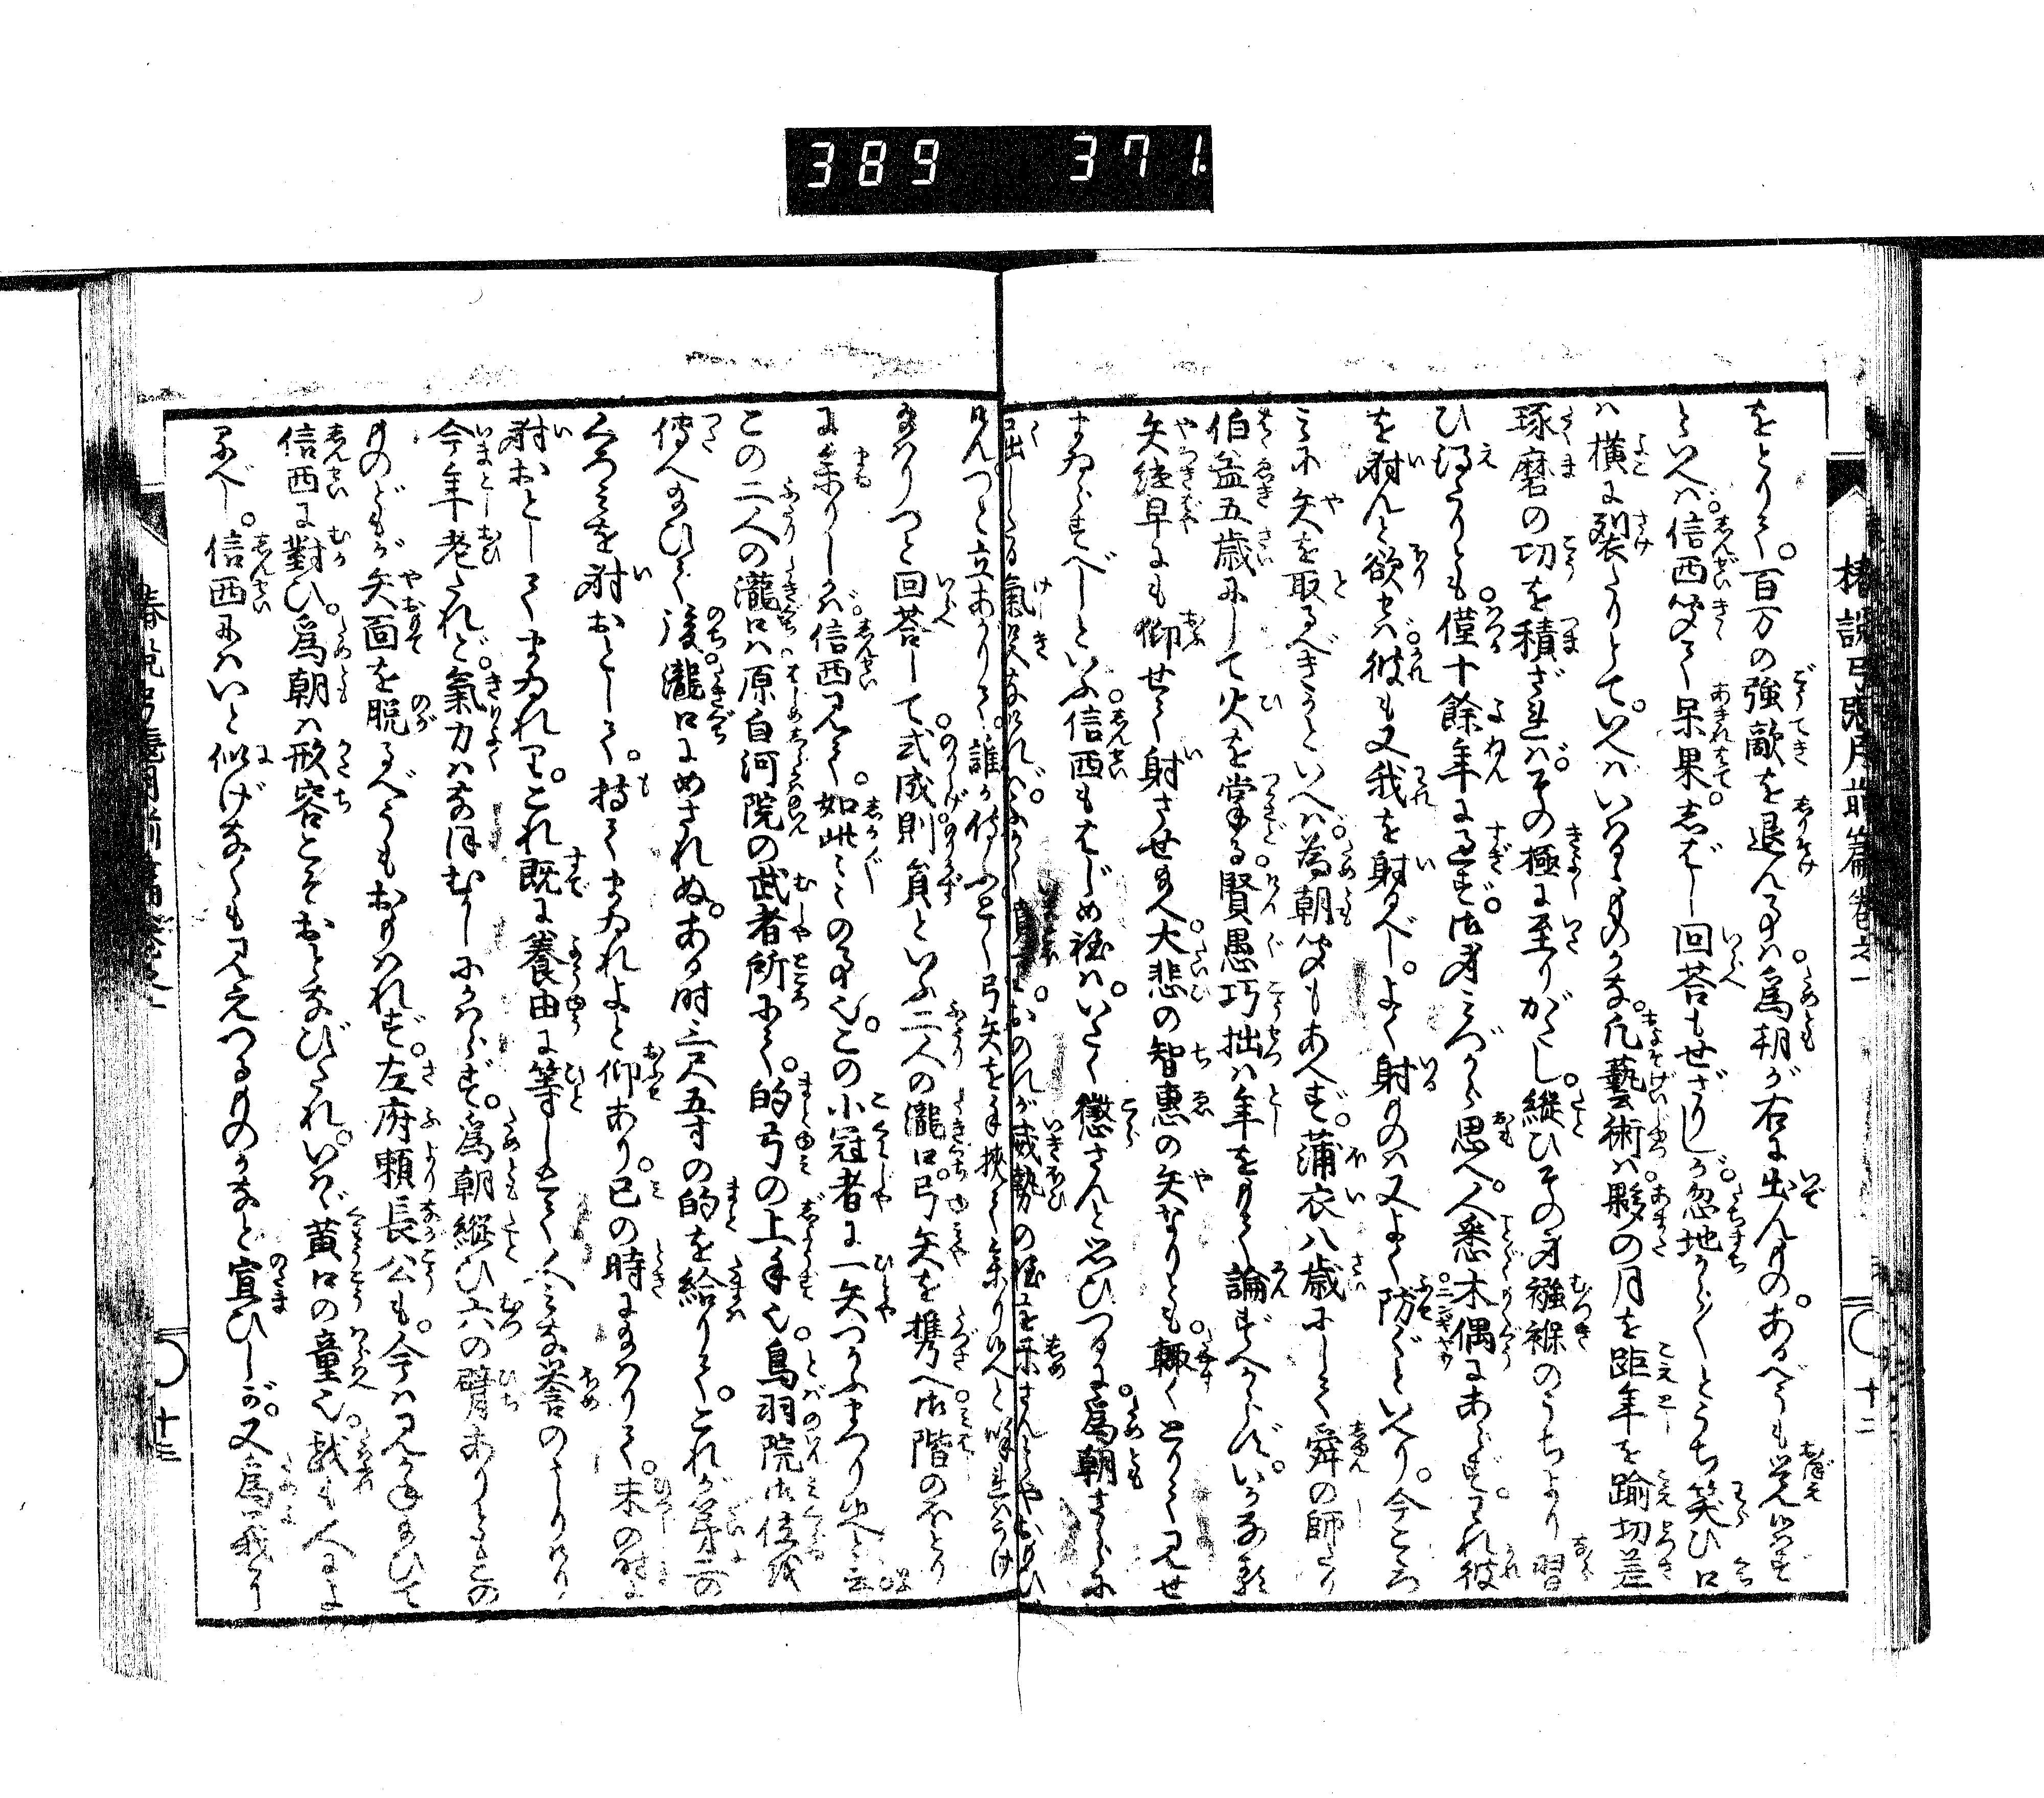 389 371.
椿説弓張月前篇巻之一 十二
をとりて。百万の強敵を退んものは。爲朝が右に出んもの。あるべうも覚候はず
といへは。信西聞て呆果。しばし回荅もせざりしが。忽地からからとうち笑ひ。口
は横に裂たりとて。いへばいはるゝものかな。凡藝術は。夥の月を距年を踰。切差
琢磨の功を積ざれば。その極に至りがたし。縦ひその身襁褓のうちより習
ひ得たりとも。僅十餘年に過ず。御身みづから思へ。人悉木偶にあらず。われ彼
を射んと欲すれば。彼も又我を射べし。よく射ものは又よく防ぐといへり。今ころ
みに矢を取るべきかといへは。為朝聞もあへず。蒲衣八歳にして舜の師たり
伯益五歳にして火を掌る。賢愚巧拙は年をもて論ずべからず。いかなる
矢継早にも仰せて射させ給へ。大悲の智惠の矢なりとも。輙くとりて見せ
まゐらすべしといふ。信西もはじめ程は。いたく懲さんと思ひつるに。爲朝さらに
出したる氣色なければ。ふかく 。おのれが威勢の程を示さんとやおもひ
けん。つと立あがりて。誰か侍ふとく弓矢を手挟て参り候へと
給はりつと回荅して。式成則員といふ二人の瀧口。弓矢を携へ御階のほとり
に参りしかば。信西見て。如此々々の事也。この小冠者に一矢つかふまつり候へと云。
この二人の瀧口は原白河院の武者所にて。的弓の上手也。鳥羽院御位
傳へ給ひて後。瀧口にめされぬ。ある時三尺五寸の的を給りて。これが第二の
くろみを射おとして。持てまゐれよと仰あり。巳の時に給はりて。未の時に
射おとしてまゐれり。これ既に養由に等しとて人みな誉のゝしりけり
今年老たれど。氣力はなほむかしにかはらず。爲朝縦ひ六の臂ありとも。この
ものどもが矢面を脱るべうもおもはれず。左府頼長公も。今は見かね給ひて
信西に對ひ。爲朝は形容こそおとなびたれ。いまだ黄口の童也。戯も人によ
るべし。信西にはいと似げなくも見えつるものかなと宣ひしが。又爲義に
椿説弓張月前篇巻之一 十三